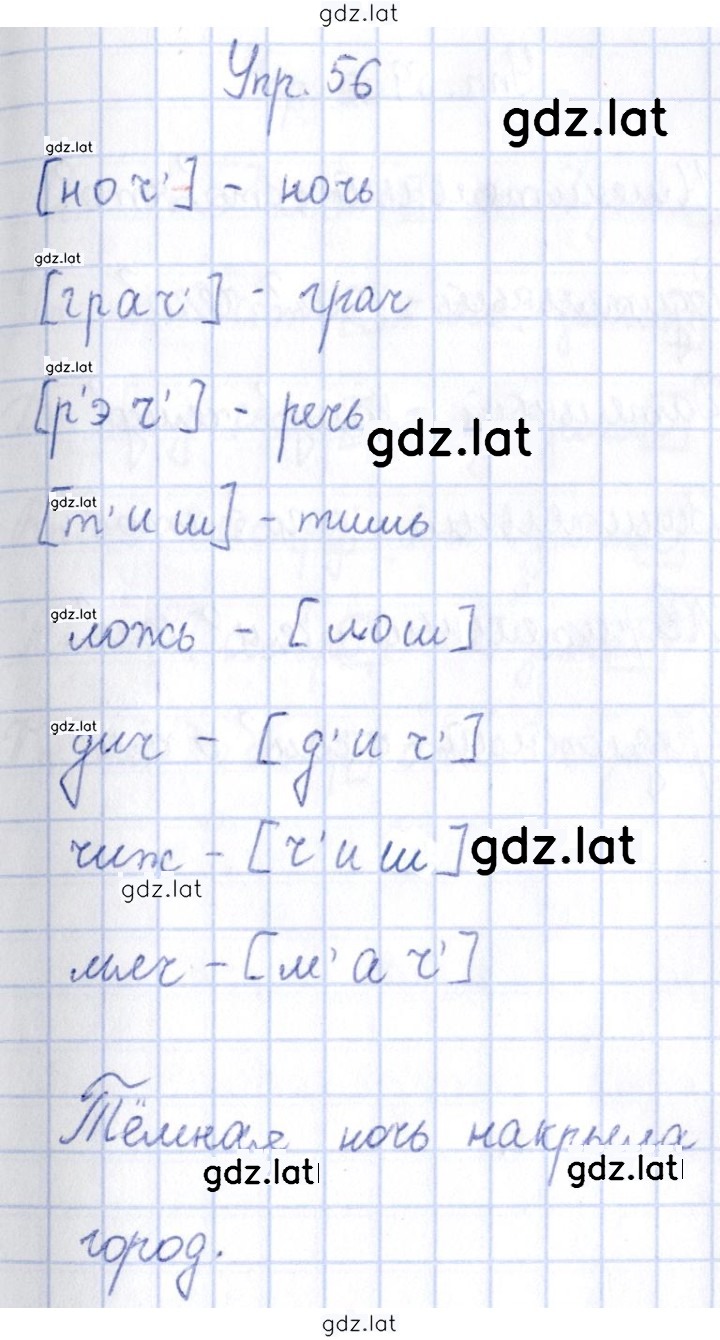 gdz.lat
Упр. 56
gdz.lat
gdz.lat
[ноч'] - ночь
gdz.lat
[грач'] - грач
gdz.lat
[р'эч'] - речь
gdz.lat
gdz.lat
[т'иш] - тишь
gdz.lat
ложь - [лош]
gdz.lat
дич - [д'ич']
чиж - [ч'иш]
gdz.lat
gdz.lat
мяч - [м'ач']
Тёмная ночь накрыла
gdz.lat
gdz.lat
город.
gdz.lat